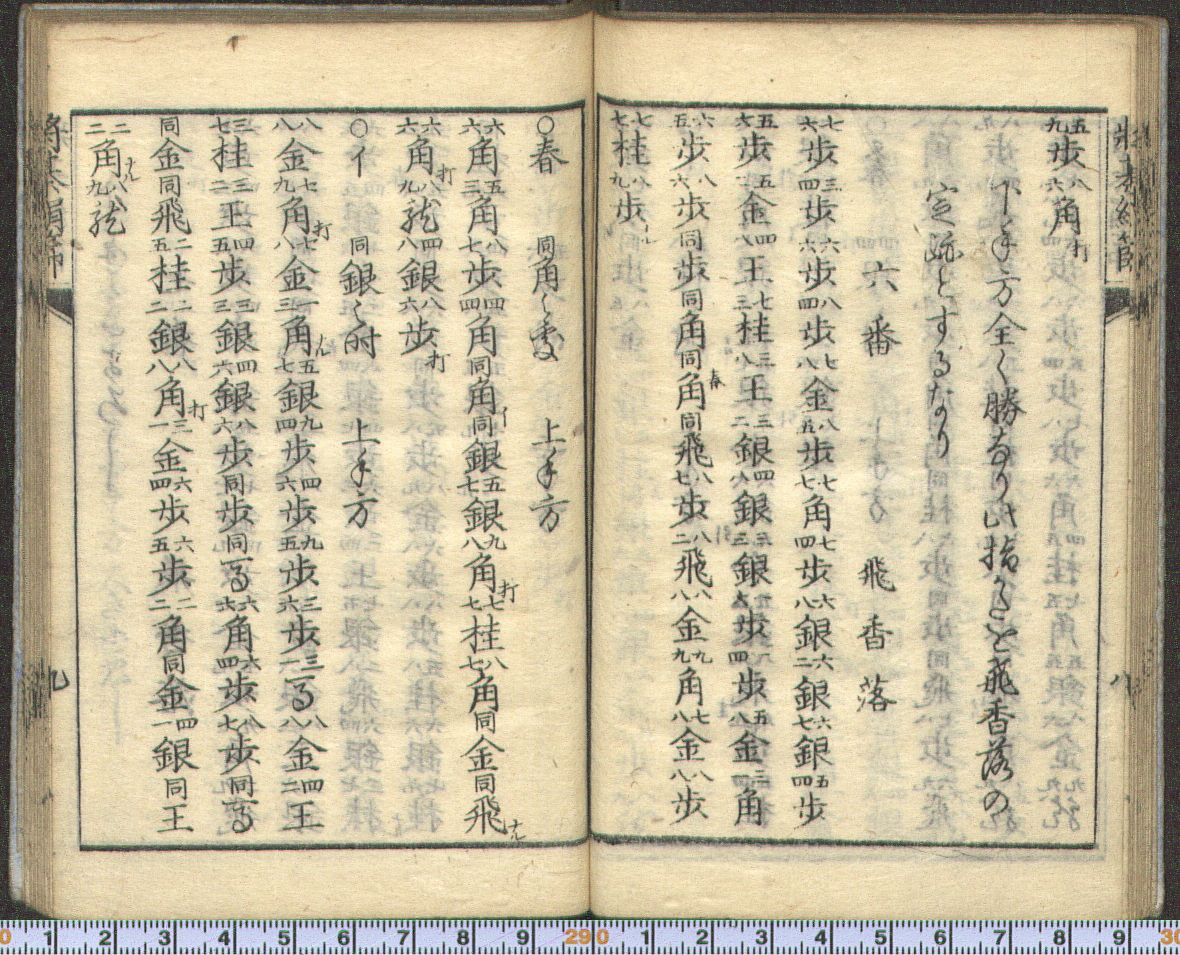 五九歩八六角打
下手方全く勝なり此指かたを飛香落の
定跡とするなり
六番　飛香落
七六歩三四歩六六歩八四歩七八金八五歩七七角七四歩六八銀六二銀六七銀五四歩
五六歩五二金四八王七三桂三八王三二銀四八銀三三銀歩四歩五八金三一角
六五歩八六歩同歩同角同角春同飛八七歩八二飛八八金九九角七八金八八歩
七七桂八九歩ナル
八
○春　同角之処　上手方
六六角五三角八七歩四四角同角イ同銀五七銀九八角打七七桂八七角同金同飛ナル
六六角打八九龍四八銀八六歩打
○イ　同銀之時　上手方
八八金七九角打七八金一三角ナル五七銀九四歩四六歩九五歩三六歩三一馬八八金四二王
三七桂三二王四五歩三三銀四六銀八六歩同歩同馬六六角六四歩八七歩同馬
同金同飛二五桂二二銀八八角打三一金六四歩六五歩二二角同金四一銀同王
二二角ナル八九龍
将棊絹篩　九